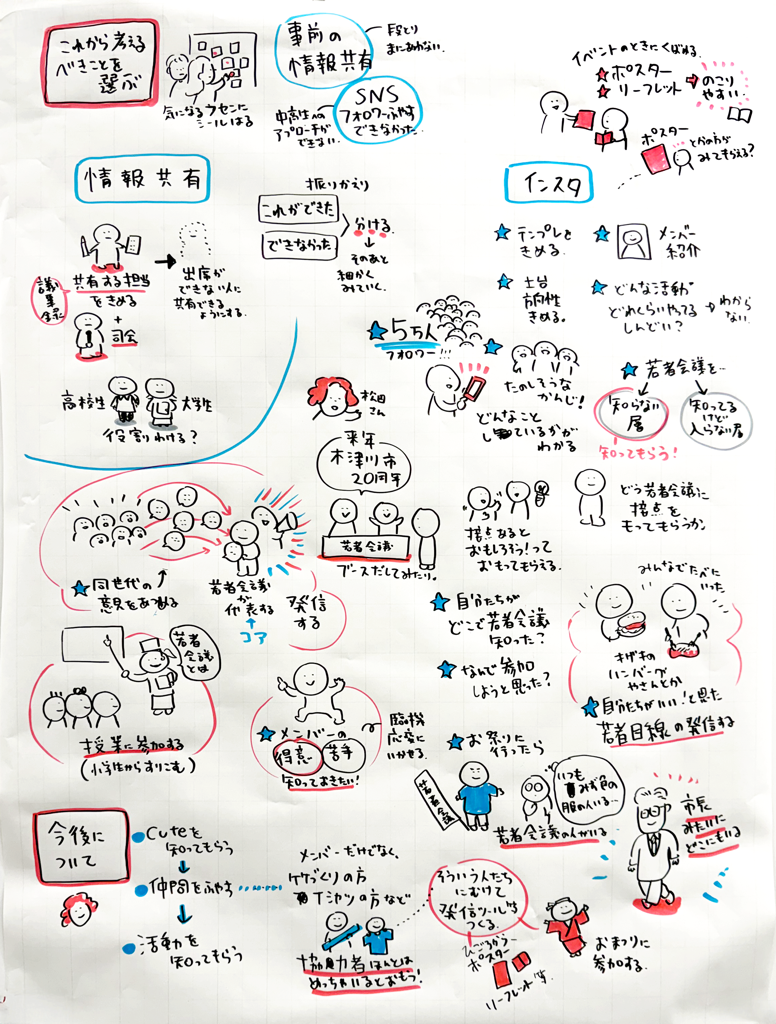 これから考える
べきことを
選ぶ
気になるフセンに
シールはる
事前の
情報共有
段どり
まにあわない
SNS
フォロワーふやす
できなかった。
中高生への
アプローチが
できない。
イベントのときにくばれる
ポスター
リーフレット
のこり
やすい
ポスター
とかの方が
みてもらえる?
情報共有
共有する担当
をきめる
議事録
+
司会
出席が
できない人に
共有できる
ようにする。
高校生
大学生
役割りわける?
振りかえり
これができた
できなかった
分ける
そのあと
細かく
みていく。
インスタ
テンプレを
きめる。
メンバー
紹介
土台
方向性
きめる。
どんな活動
どれくらいやってる
しんどい?
わから
ない
5万人
フォロワー!!!
たのしそうな
かんじ!
どんなこと
しているかが
わかる
若者会議を…
知らない
層
知ってもらう!
知ってる
けど
入らない層
松田
さん
来年
木津川市
20周年
若者会議
ブースだしてみたり。
接点なると
おもしろそう!って
おもってもらえる。
どう若者会議に
接点を
もってもらうか
同世代の
意見をあつめる
若者会議
が
代表する
コア
発信
する
若者
会議
とは
授業に参加する
(小学生からすりこむ)
メンバーの
得意
苦手
知っておきたい!
臨機
応変に
いかせる。
自分たちが
どこで若者会議
知った?
なんで参加
しようと思った?
みんなでたべに
いった
ハンバーグ
やさんとか
自分たちがいい!と思た
若者目線の発信する
お祭りに
行ったら
若者会
いつも
みず色の
服の人いる…
若者会議の人がいる
市長
みたいに
どこにもいる
今後に
ついて
Cuteを
知ってもらう
仲間をふやす
活動を
知ってもらう
メンバーだけでなく、
竹づくりの方
Tシャツの方など
協力者ほんとは
めっちゃいるとおもう!
そういう人たち
にむけて
発信ツール等
つくる。
ひごろから
ポスター
リーフレット等
おまつりに
参加する。